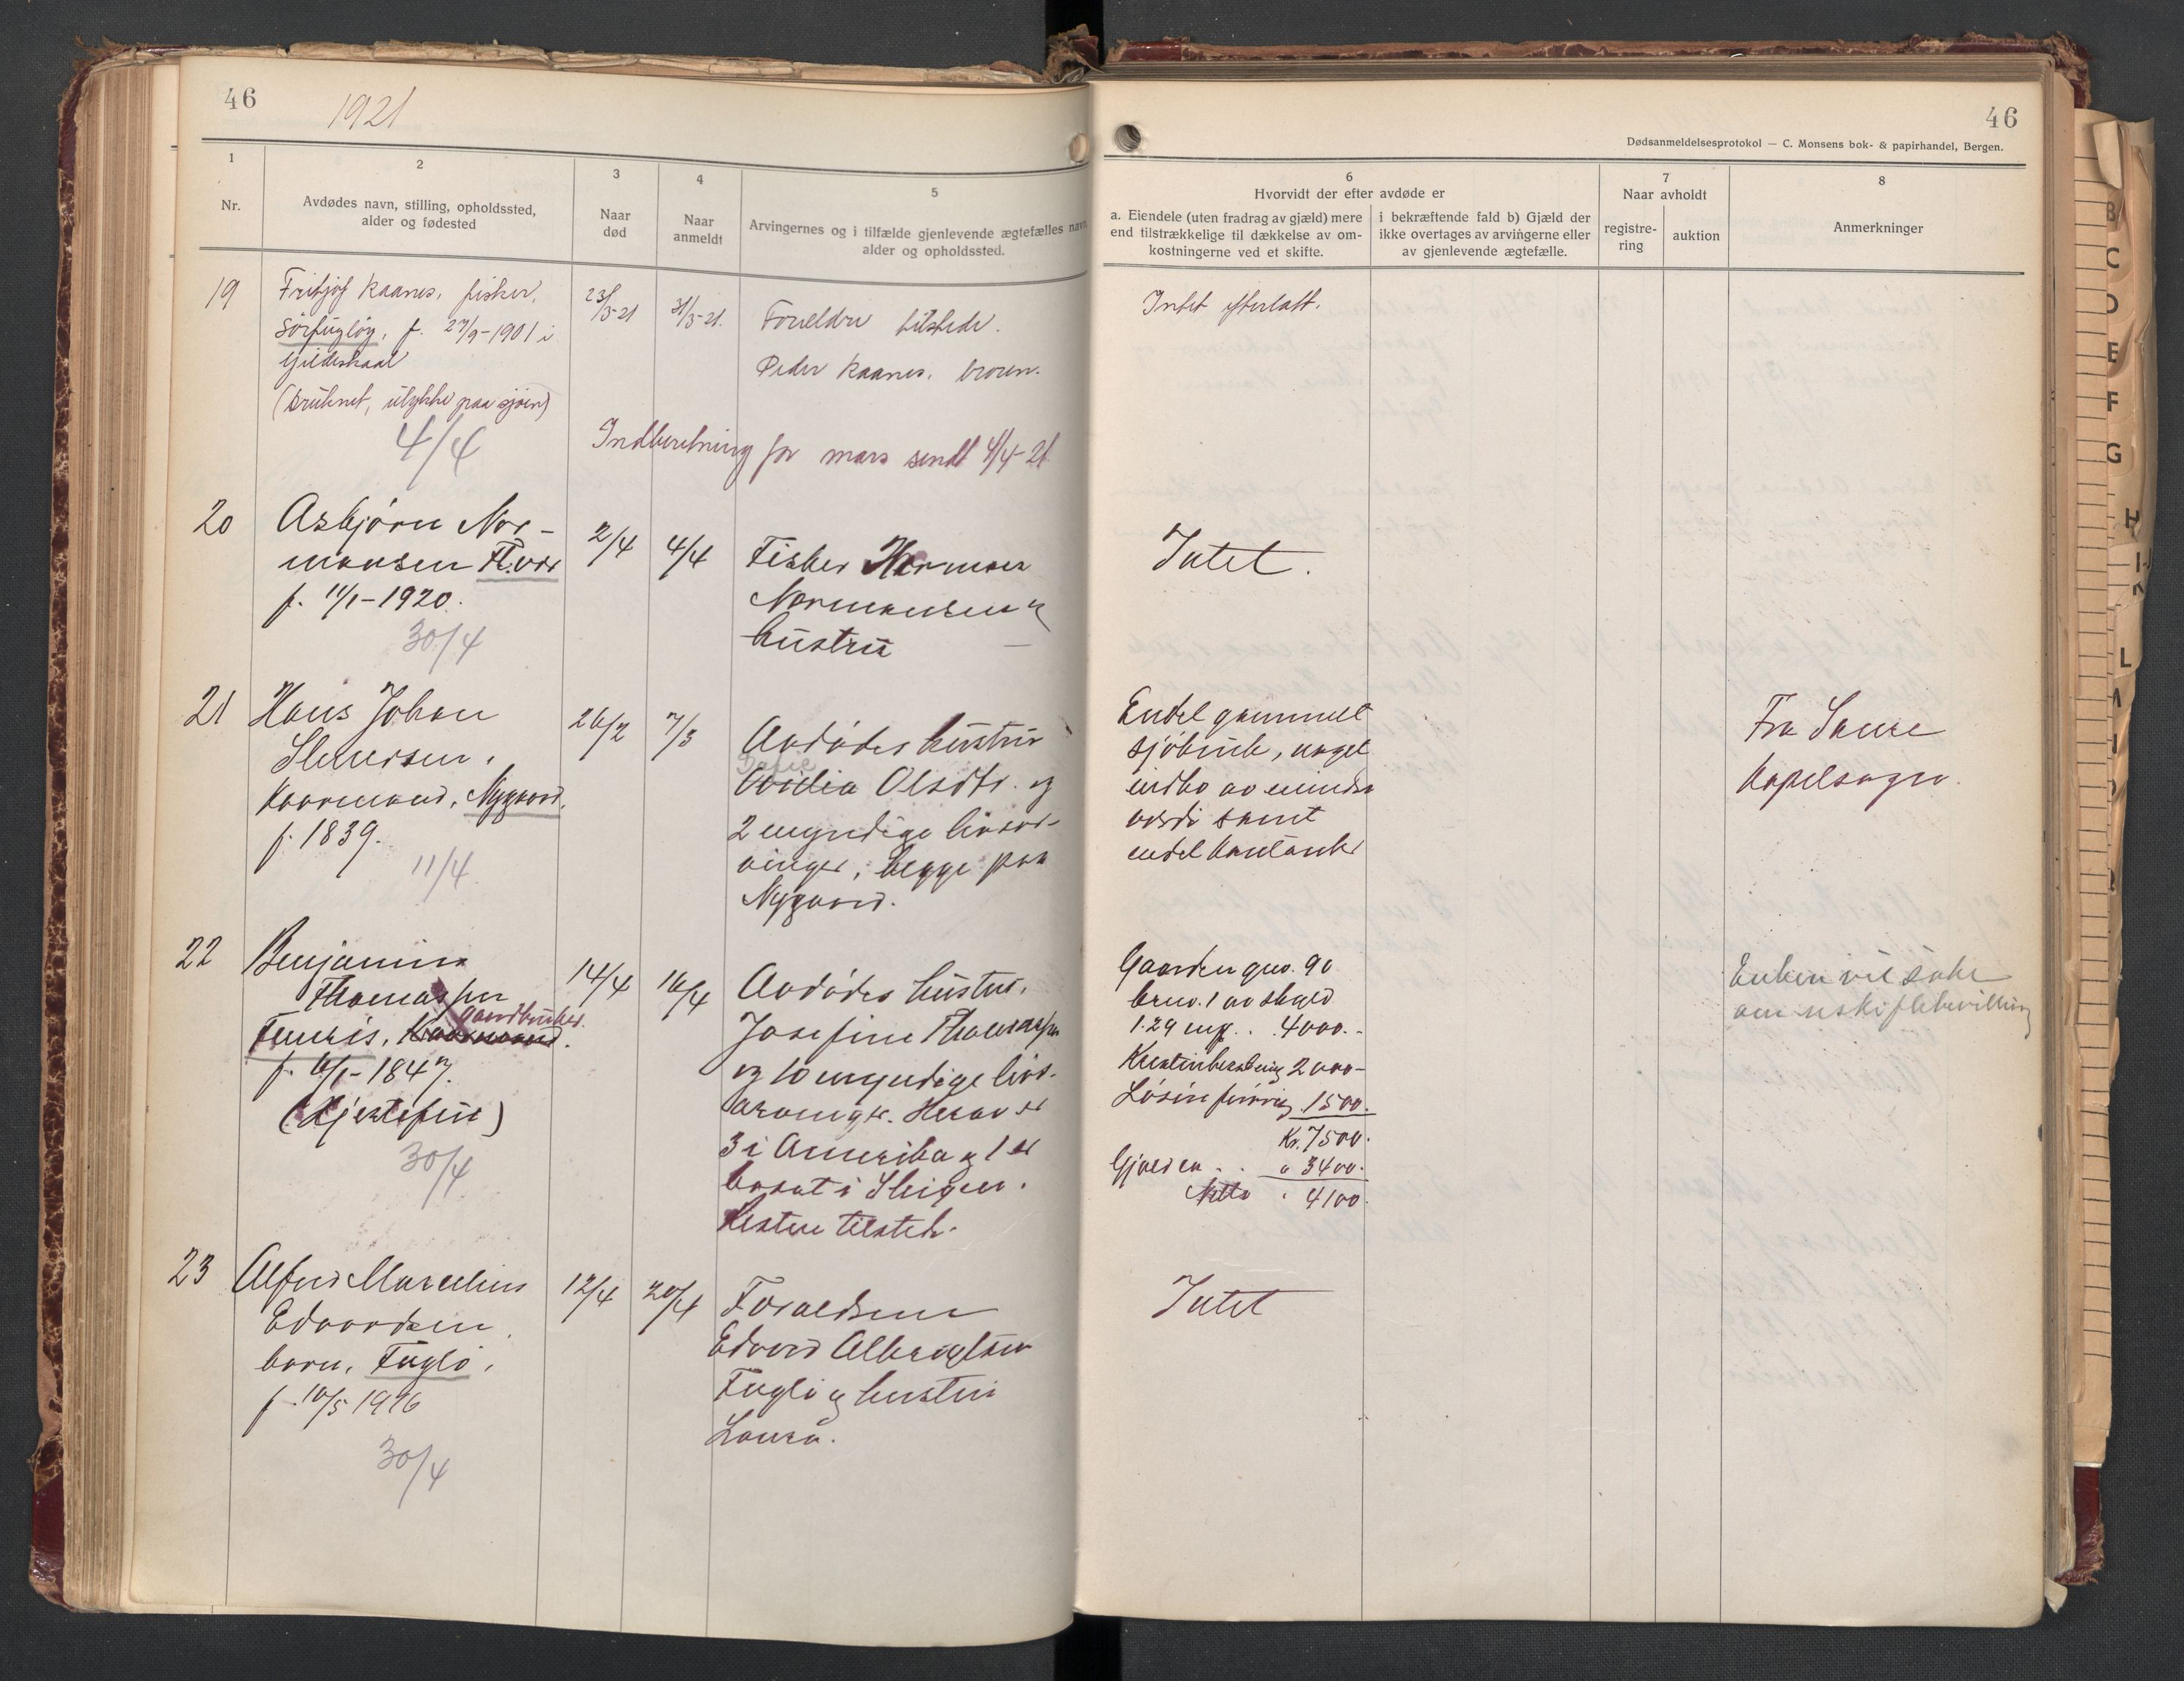 46
1921
1
Nr.
2
Avdødes navn, stilling, opholdssted,
alder og fødested
3
Naar
død
4
Naar
anmeldt
5
Arvingernes og i tilfælde gjenlevende ægtefælles navn,
alder og opholdssted.
19
Fritjof Kaanes, fisker,
Sørfugløy, f. 27/9-1901 i
Gildeskaal
(Druknet, ulykke paa sjøen)
4/4
23/3-21
31/3-21.
Forældre tilstede.
Peder Kaanes, broren.
Indberetning for mars sendt 4/4-21
20
Asbjørn Nor-
mansen
f. 11/1-1920.
30/4
2/4
4/4
Fisker Herman
Normansen og
hustru
21
Hans Johan
Kaarmand, Nygaard.
f. 1839.
11/4
26/2
7/3
Avdødes hustru
Olsdtr. og
2 myndige livsar-
vinger, begge paa
Nygaard.
22
Benjamin
Thomassen
gaardbruker.
Kaarmand.
f. 6/1-1847.
30/4
14/4
16/4
Avdødes hustru,
Josefine Thomassen
og 10 myndige livs-
arvinger. Herav er
3 i Amerika og 1 er
bosat i Steigen.
Resten tilstede.
23
Alfred Marelius
Edvardsen,
barn, Fuglø,
f. 10/5 1916
30/4
12/4
20/4
Forældrene
Edvard Albrigtsen
Fuglø og hustru
Laura.
46
Dødsanmeldelsesprotokol — C. Monsens bok- & papirhandel, Bergen.
6
Hvorvidt der efter avdøde er
a. Eiendele (uten fradrag av gjæld) mere
end tilstrækkelige til dækkelse av om-
kostningerne ved et skifte.
i bekræftende fald b) Gjæld der
ikke overtages av arvingerne eller
av gjenlevende ægtefælle.
7
Naar avholdt
registre-
ring
auktion
8
Anmerkninger
Intet efterlatt.
Intet.
Endel gammelt
sjøbruk, noget
indbo av mindre
værdi samt
endel
Fra
Kapelsogn.
Gaarden gno. 90
brno. 1 av skyld
1.29 mrk. . 4000.-
2000-
Løsøre forøvrig 1500.
Kr. 7500.
Gjælden . . " 3400.
Netto " 4100.
Enken vil søke
om uskiftebevilling
Intet
B
C
D
E
F
G
H
I-
K
L